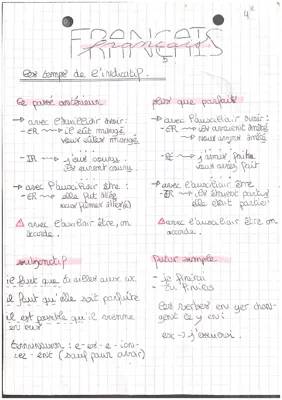 4e
FRANÇAIS
français
5
Les temps de l'indicatif.
Le passé antérieur
→ avec l'auxiliair avoir:
- ER → il eût mangé
vous eûtes mangé
- IR → j'eus couru
ils eurent couru
→ avec l'auxiliair être:
- ER → elle fut allée
⚠ avec l'auxiliair être, on
accorde.
plus que parfait
→ avec l'auxiliair avoir:
- ER → ils avaient
nous avions
vous aviez fait
→ avec l'auxiliair être
- ils étaient partis
elle était partie
⚠ avec l'auxiliair être, on
accorde.
subjonctif
il faut que tu ailles aux wc
il faut qu'elle soit parfaite
il est possible qu'il vienne
terminaison: e - es - e - ions -
iez - ent (sauf pour avoir)
futur simple
- je finirai
- tu finiras
Les verbes en yer chan-
gent le y en i
ex → j'essuierai.